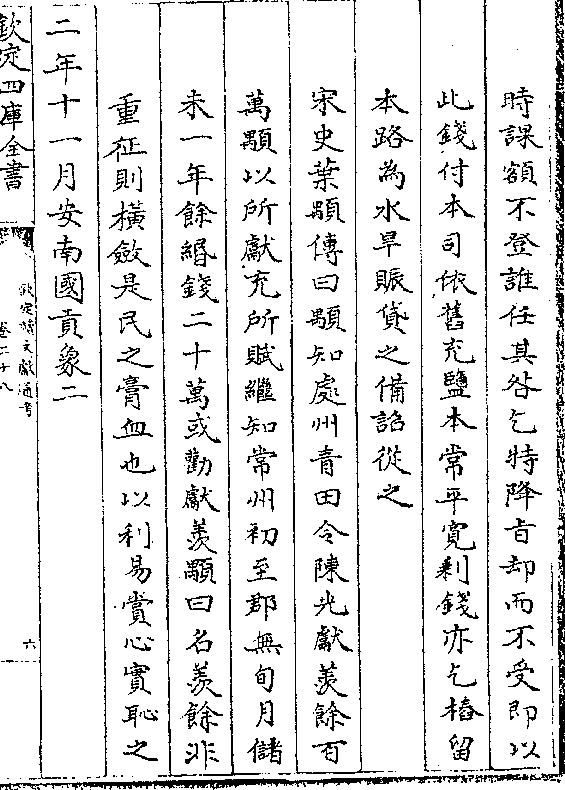 時課額不登誰任其咎乞特降旨却而不受即以
此錢付本司依舊充鹽本常平寛剩錢亦乞樁留
本路為水旱賑貸之備詔從之
宋史葉顒傳曰顒知處州青田令陳光獻羨餘百
萬顒以所獻充所賦繼知常州初至郡無旬月儲
未一年餘緡錢二十萬或勸獻羨顒曰名羨餘非
重征則橫斂是民之膏血也以利易賞心實恥之
二年十一月安南國貢象二
欽定四庫全書
欽定續文獻通考
卷二十八
六